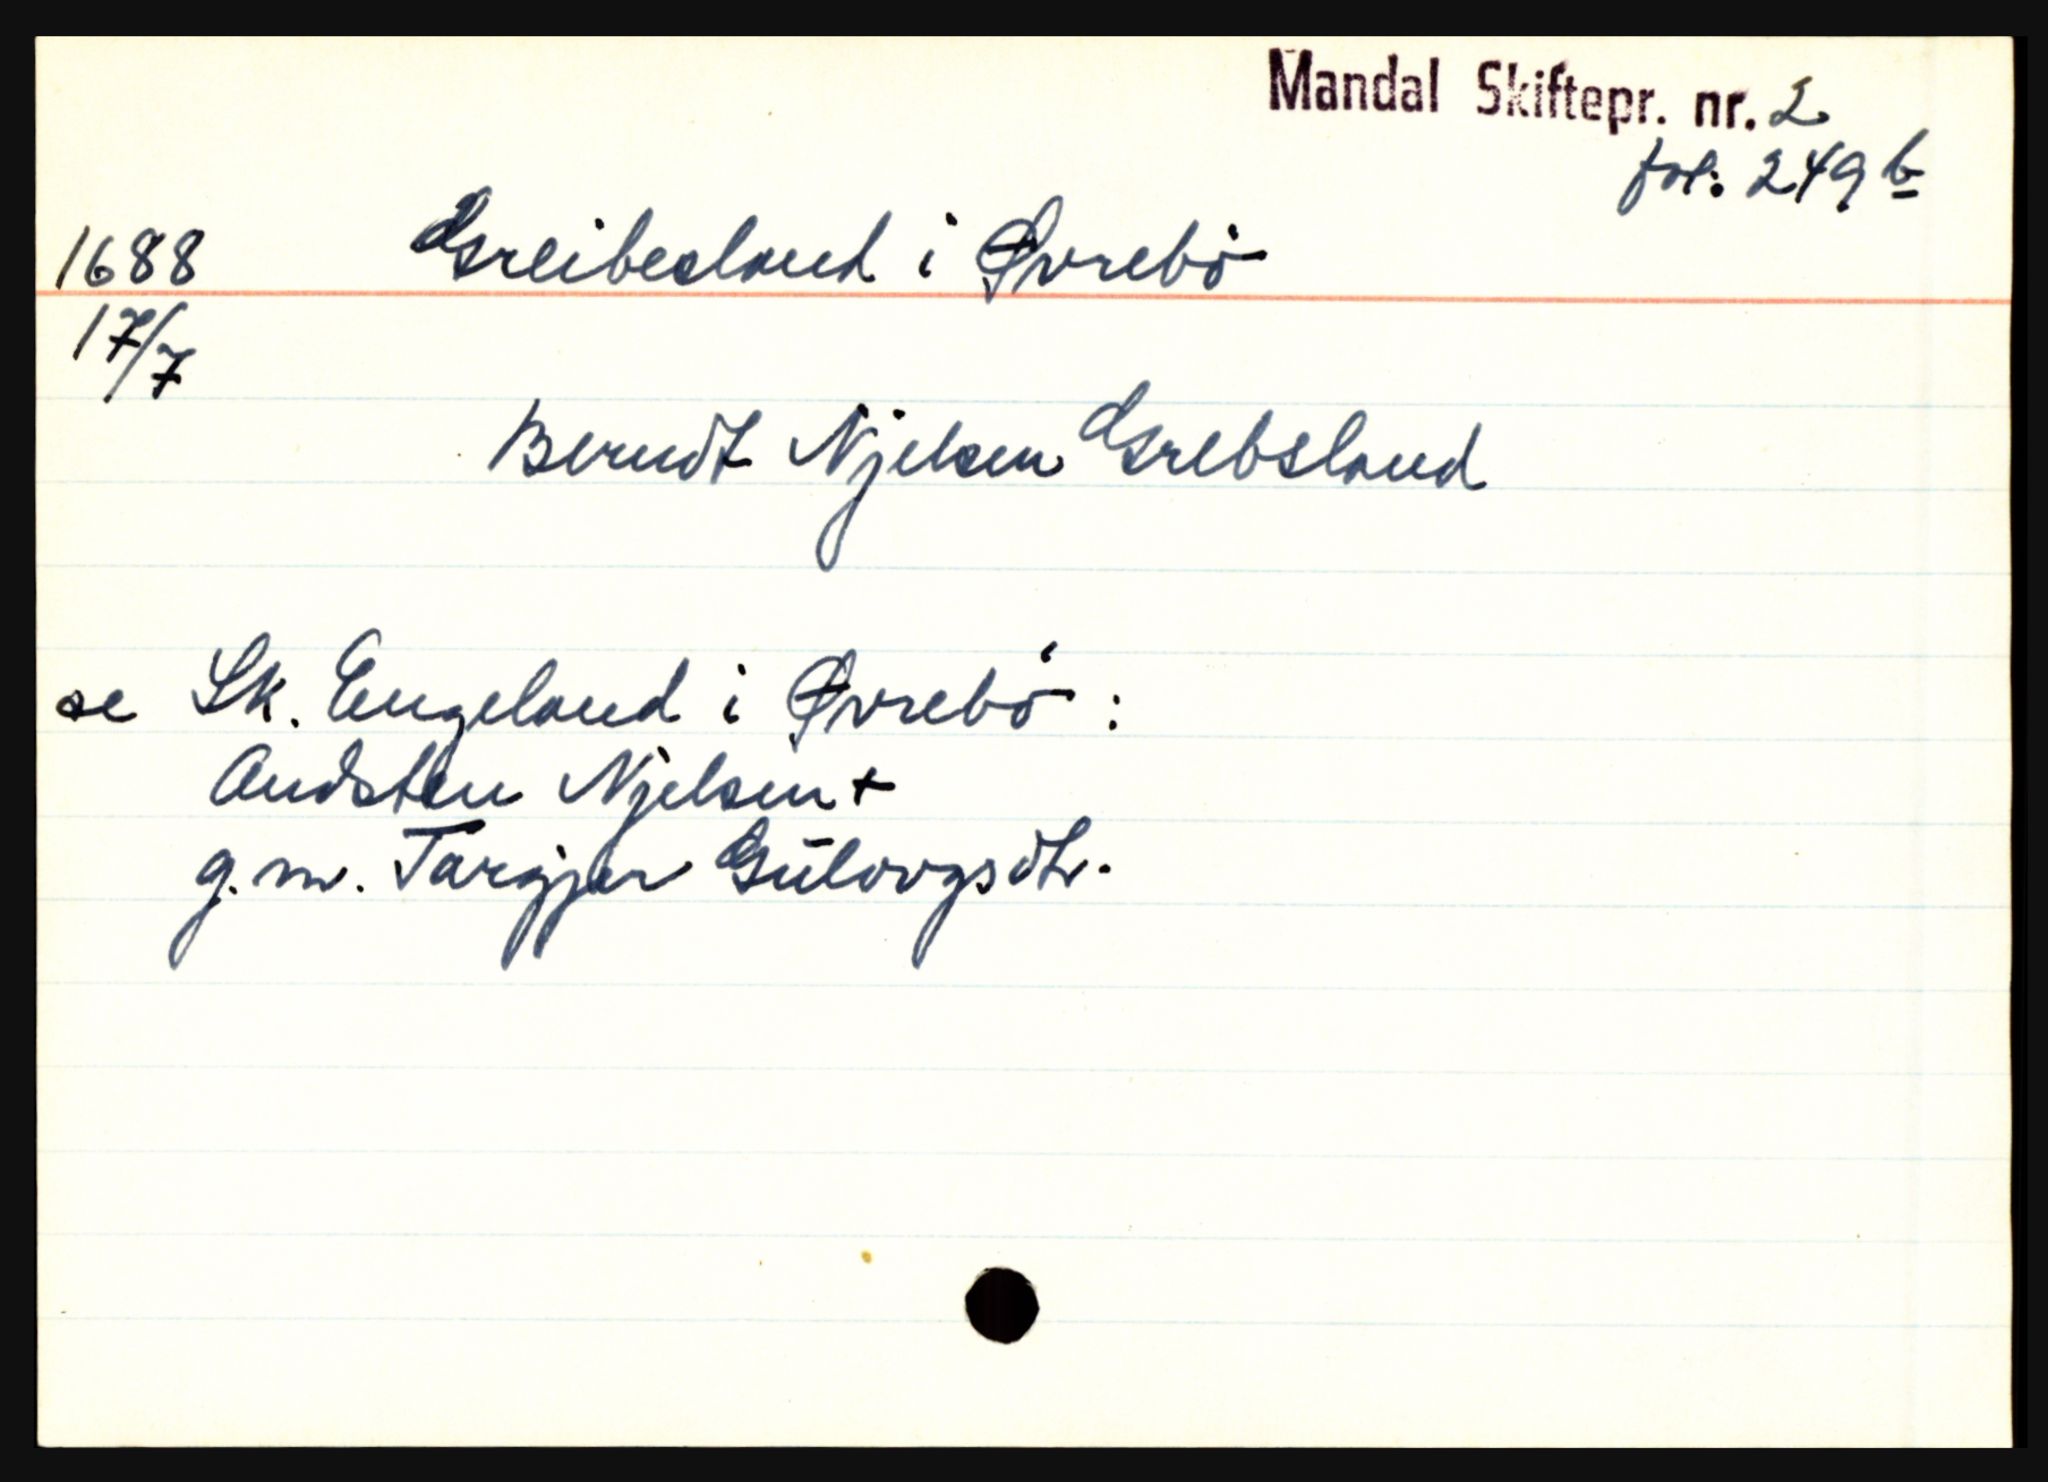 Mandal Skiftepr. nr. 2
fol: 249 b
1688 Greibesland i Øvrebö
17/7
Berndt Njelsen Grebsland
se Sk. Engeland i Øvrebö :
Andsten Njelsen +
g. m. Targjer Gülovgsdtr.